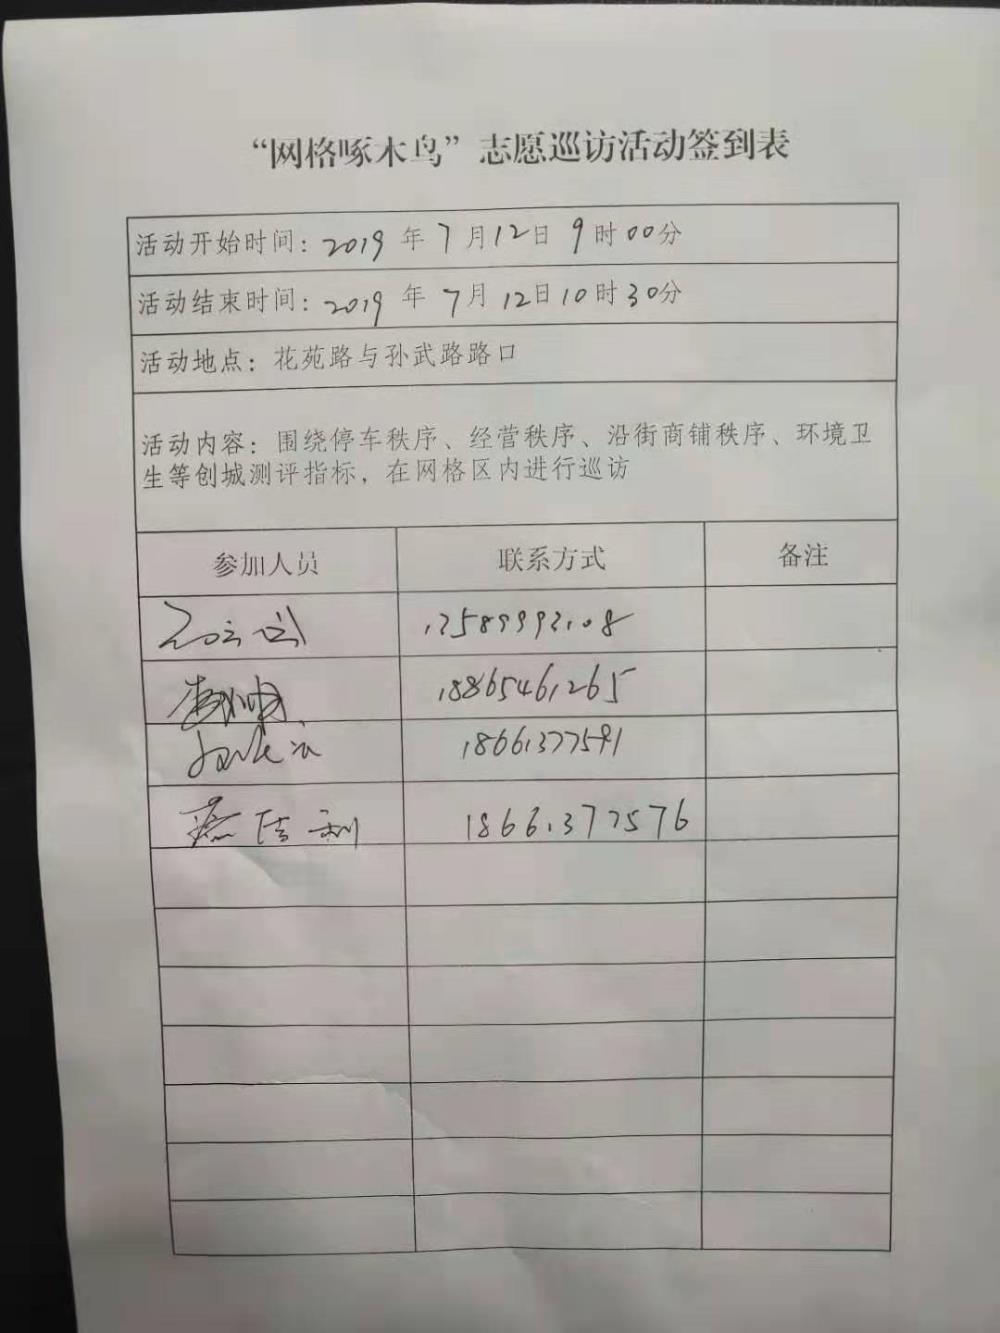 “网格啄木鸟”志愿巡访活动签到表
活动开始时间：2019 年 7 月 12 日 9 时 00 分
活动结束时间：2019 年 7 月 12 日 10 时 30 分
活动地点：花苑路与孙武路路口
活动内容：围绕停车秩序、经营秩序、沿街商铺秩序、环境卫
生等创城测评指标，在网格区内进行巡访
参加人员 联系方式 备注
18865461265
18661377591
18661377576